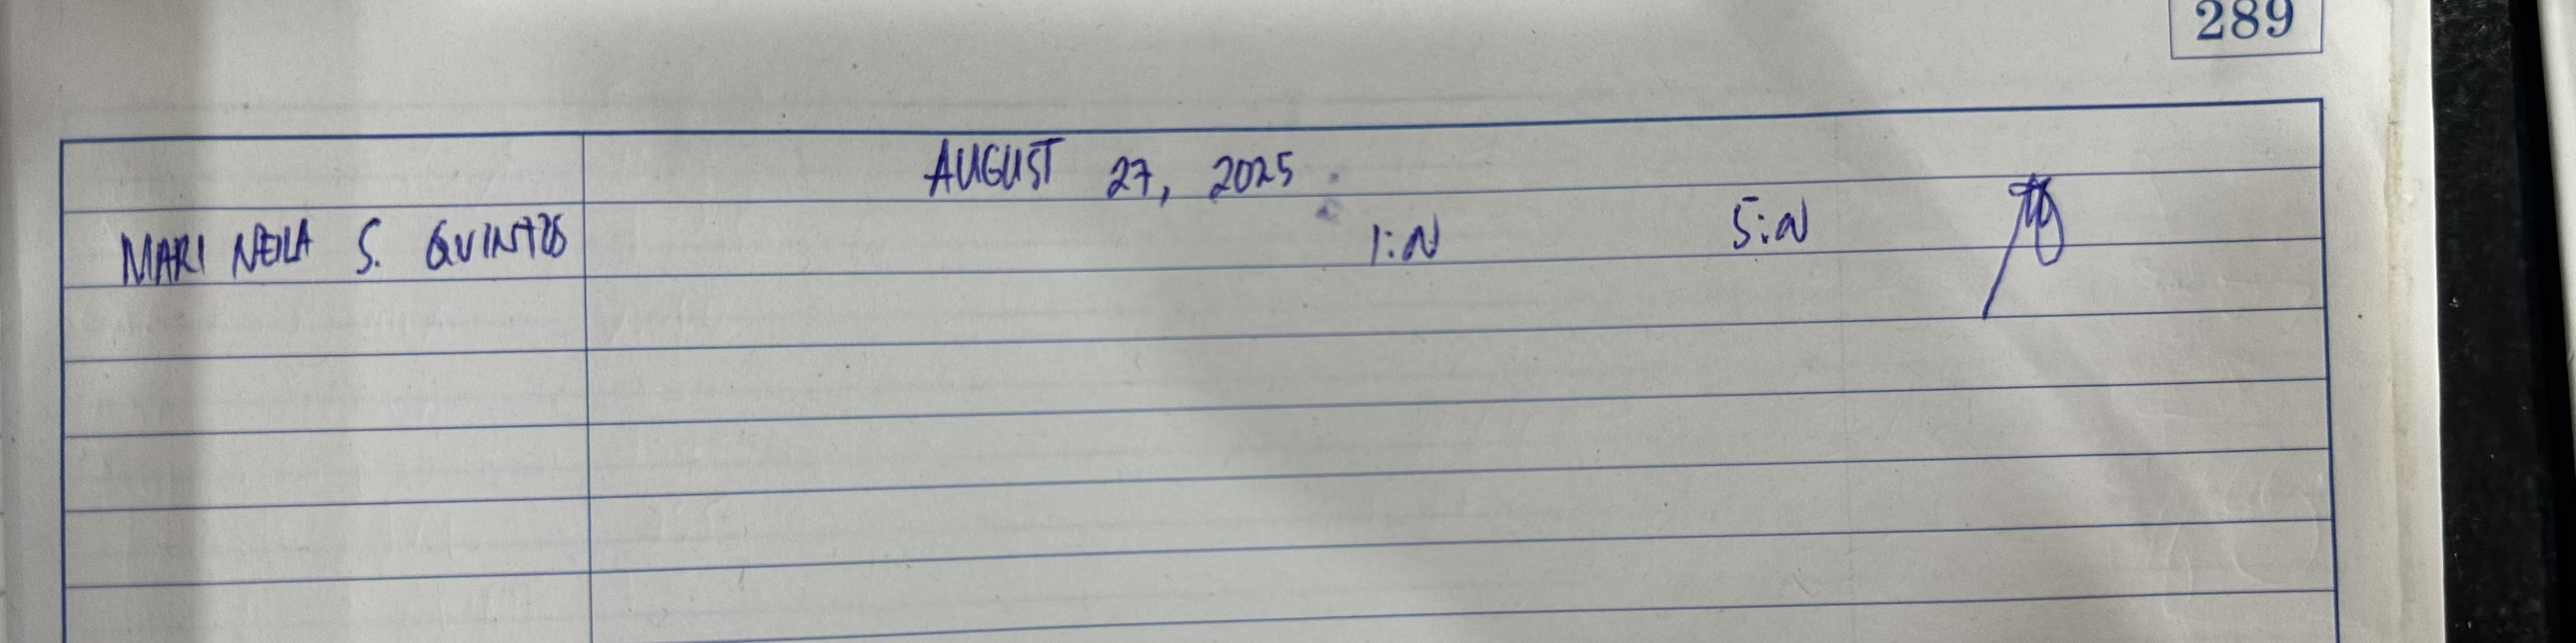 289
AUGUST 27, 2025
MARI NEILA S. QUINTOS 1:00 5:00